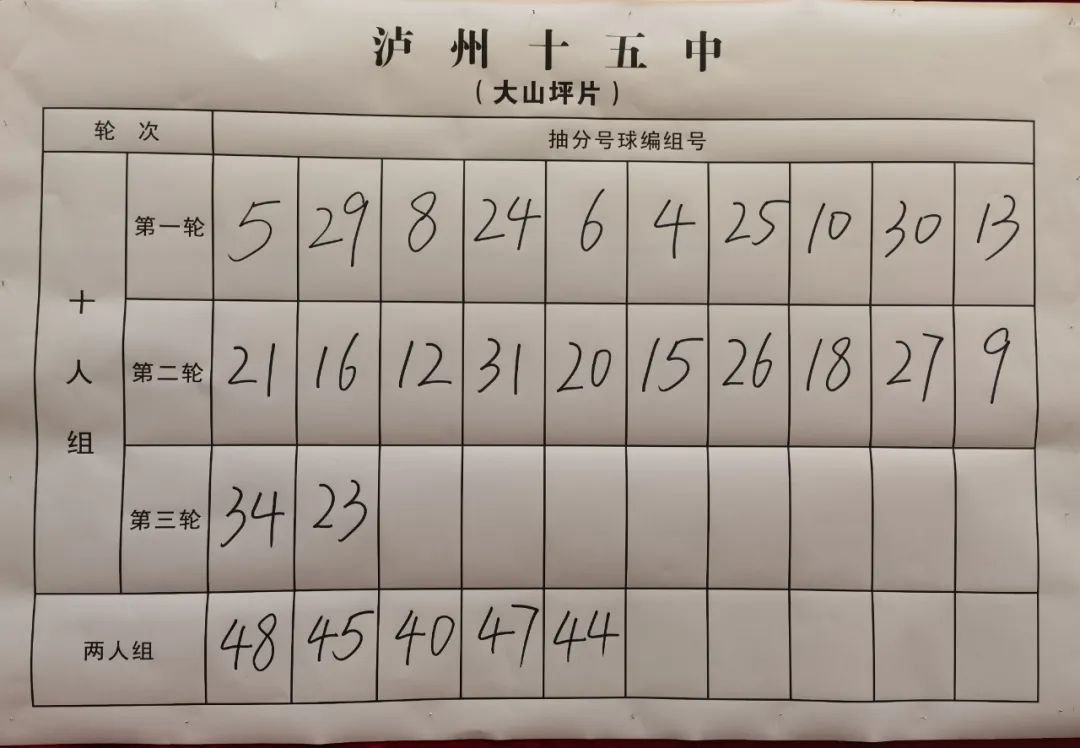 泸州十五中
（大山坪片）
轮次 抽分号球编组号
十人组
第一轮 5 29 8 24 6 4 25 10 30 13
第二轮 21 16 12 31 20 15 26 18 27 9
第三轮 34 23
两人组 48 45 40 47 44